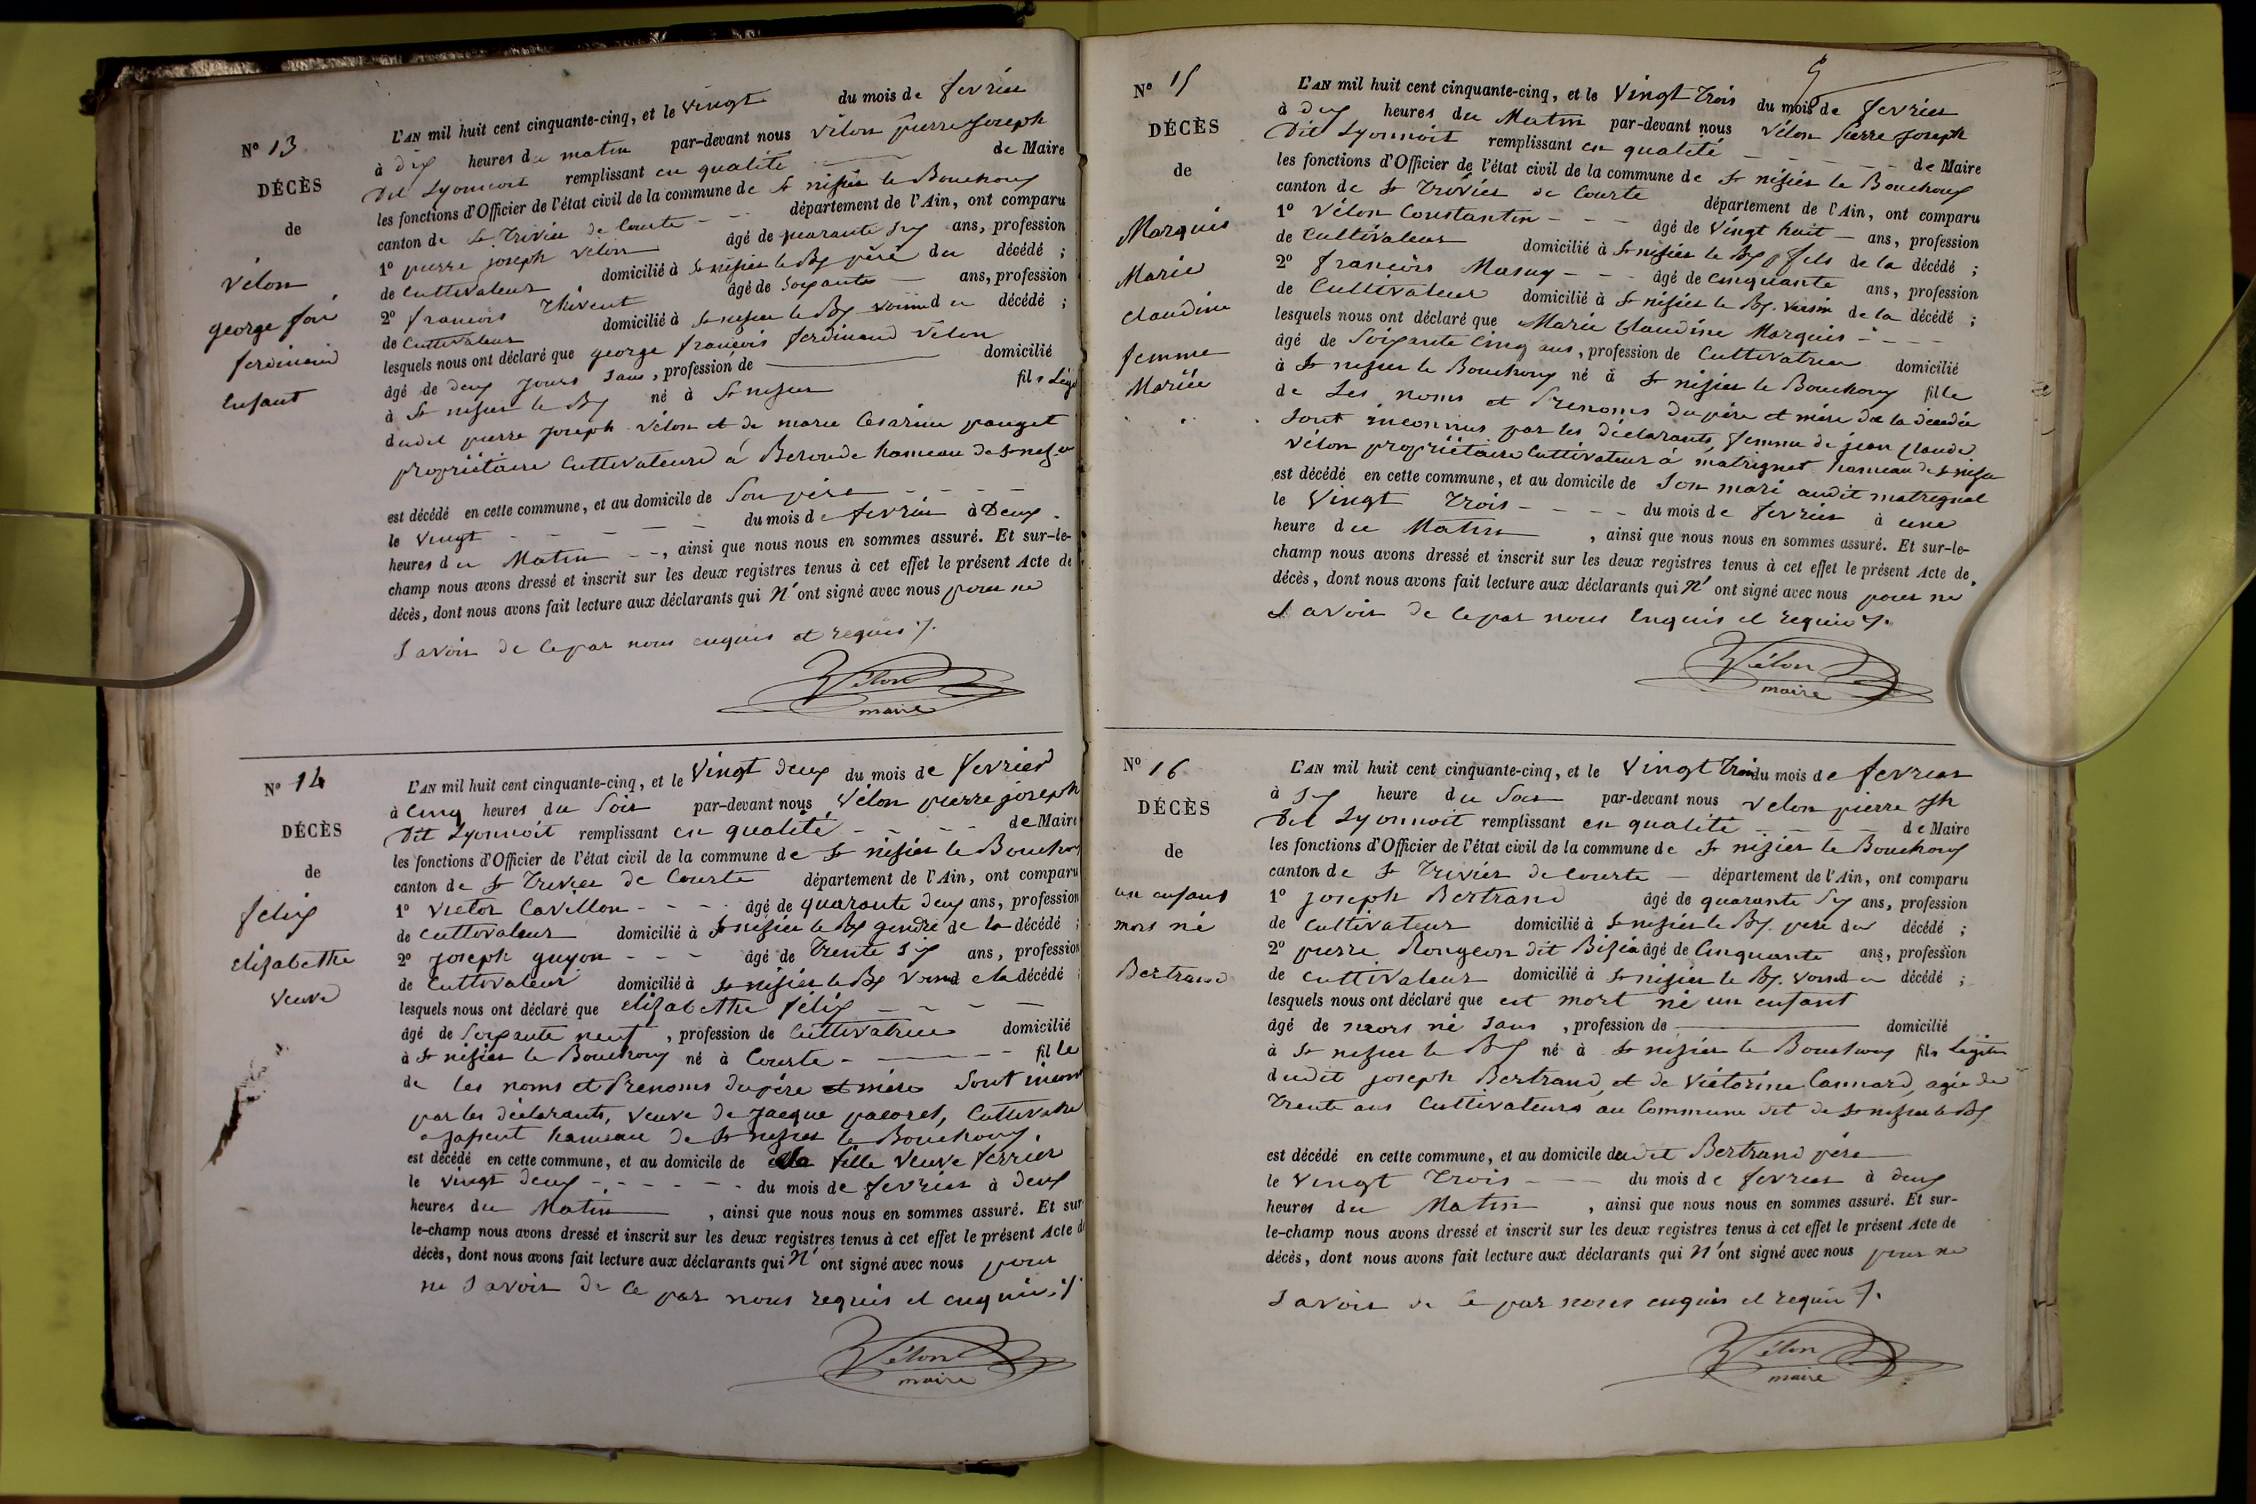 Nº 13
DÉCÈS
de
Vélon
george fois
ferdinand
Enfant
L'AN mil huit cent cinquante-cinq, et le Vingt du mois de fevrier
à dix heures du matin par-devant nous vélon pierre Joseph
Dit Lyonnoit remplissant en qualité de Maire
les fonctions d'Officier de l'état civil de la commune de St nisier le Bouchoux
canton de St Trivier de Courte - - département de l'Ain, ont comparu
1º pierre joseph vélon âgé de quarante six ans, profession
de Cultivateur domicilié à St nisier le Bx père du décédé ;
2º francois Thivent âgé de Soixante ans, profession
de Cultivateur domicilié à St nisier le Bx voisin du décédé ;
lesquels nous ont déclaré que george francois ferdinand vélon
âgé de deux jours sans, profession de domicilié
à St nisier le Bx né à St nisier fils Légi
dudit pierre joseph vélon et de marie Cesarine pauget
propriétaire Cultivateurs à Beronde hameau de St nizier
est décédé en cette commune, et au domicile de Son père - - - -
le Vingt - - - - - du mois de fevrier à Deux
heures du Matin - -, ainsi que nous nous en sommes assuré. Et sur-le-
champ nous avons dressé et inscrit sur les deux registres tenus à cet effet le présent Acte de
décès, dont nous avons fait lecture aux déclarants qui N' ont signé avec nous pour ne
Savoir de Ce par nous enquis et requis ./.
Vélon
maire
Nº 14
DÉCÈS
de
felix
elizabethe
veuve
L'AN mil huit cent cinquante-cinq, et le Vingt deux du mois de fevrier
à Cinq heures du Soir par-devant nous Vélon pierre joseph
Dit Lyonnoit remplissant en qualité - - - - de Maire
les fonctions d'Officier de l'état civil de la commune de St nisier le Bouchoux
canton de St Trivier de Courte département de l'Ain, ont comparu
1º victor Cavillon - - - - âgé de quarante deux ans, profession
de Cultivateur domicilié à St nisier le Bx gendre de la décédé ;
2º joseph guyon - - - âgé de Trente six ans, profession
de Cultivateur domicilié à St nisier le Bx Voisin de la décédé
lesquels nous ont déclaré que elizabethe félix - - -
âgé de Soixante neuf, profession de Cultivatrice domicilié
à St nisier le Bouchoux né à Courte - - - fille
de les noms et Prenoms du père et mère Sont incon
par les déclarants, veuve de Jacque pacoret, Cultivatri
hameau de St nisier le Bouchoux,
est décédé en cette commune, et au domicile de fille veuve ferrier
le Vingt deux - - - - - - du mois de fevrier à deux
heures du Matin , ainsi que nous nous en sommes assuré. Et sur-
le-champ nous avons dressé et inscrit sur les deux registres tenus à cet effet le présent Acte de
décès, dont nous avons fait lecture aux déclarants qui N' ont signé avec nous pour
ne Savoir de Ce par nous requis et enquis ./.
Vélon
maire
Nº 15
DÉCÈS
de
Marquis
Marie
claudine
femme
Mariée
L'AN mil huit cent cinquante-cinq, et le Vingt Trois du mois de fevrier
à dix heures du Matin par-devant nous vélon Pierre Joseph
Dit Lyonnoit remplissant en qualité - - - - - de Maire
les fonctions d'Officier de l'état civil de la commune de St nisier le Bouchoux
canton de St Trivier de Courte département de l'Ain, ont comparu
1º Vélon Constantin - - - âgé de Vingt huit - ans, profession
de Cultivateur domicilié à St nisier le Bx fils de la décédé ;
2º francois Masuy - - - âgé de cinquante ans, profession
de Cultivateur domicilié à St nisier le Bx. voisin de la décédé ;
lesquels nous ont déclaré que Marie Claudine Marquis - - - -
âgé de Soixante Cinq ans, profession de Cultivatrice domicilié
à St nisier le Bouchoux né à St nisier le Bouchoux fille
de Les noms et Prenoms du père et mère de la décédée
Sont inconnus par les déclarants, femme de jean Claude
Vélon propriétaire Cultivateur à matrignat hameau de St nisier
est décédé en cette commune, et au domicile de Son mari audit matregnat
le Vingt Trois - - - - du mois de fevrier à une
heure du Matin , ainsi que nous nous en sommes assuré. Et sur-le-
champ nous avons dressé et inscrit sur les deux registres tenus à cet effet le présent Acte de
décès, dont nous avons fait lecture aux déclarants qui N' ont signé avec nous pour ne
Savoir de Ce par nous Enquis et requis ./.
Vélon
maire
Nº 16
DÉCÈS
de
un enfant
mort né
Bertrand
L'AN mil huit cent cinquante-cinq, et le Vingt Trois du mois de fevrier
à Six heure du Soir par-devant nous vélon pierre jph
Dit Lyonnoit remplissant en qualité - - - - de Maire
les fonctions d'Officier de l'état civil de la commune de St nizier le Bouchoux
canton de St Trivier de Courte - département de l'Ain, ont comparu
1º joseph Bertrand âgé de quarante Six ans, profession
de Cultivateur domicilié à St nisier le Bx. père du décédé ;
2º pierre Rongeon dit Bizia âgé de Cinquante ans, profession
de Cultivateur domicilié à St nisier le Bx. voisin du décédé ;
lesquels nous ont déclaré que est mort né un enfant
âgé de mort né sans , profession de domicilié
à St nisier le Bx né à St nizier le Bouchoux fils Legitim
dudit joseph Bertrand, et de Victorine Cannard, agée de
Trente ans Cultivateurs au Commune dit de St nisier le Bx
est décédé en cette commune, et au domicile dudit Bertrand père
le Vingt Trois - - - du mois de fevrier à deux
heures du Matin , ainsi que nous nous en sommes assuré. Et sur-
le-champ nous avons dressé et inscrit sur les deux registres tenus à cet effet le présent Acte de
décès, dont nous avons fait lecture aux déclarants qui N' ont signé avec nous pour ne
Savoir de Ce par nous enquis et requis ./.
Vélon
maire